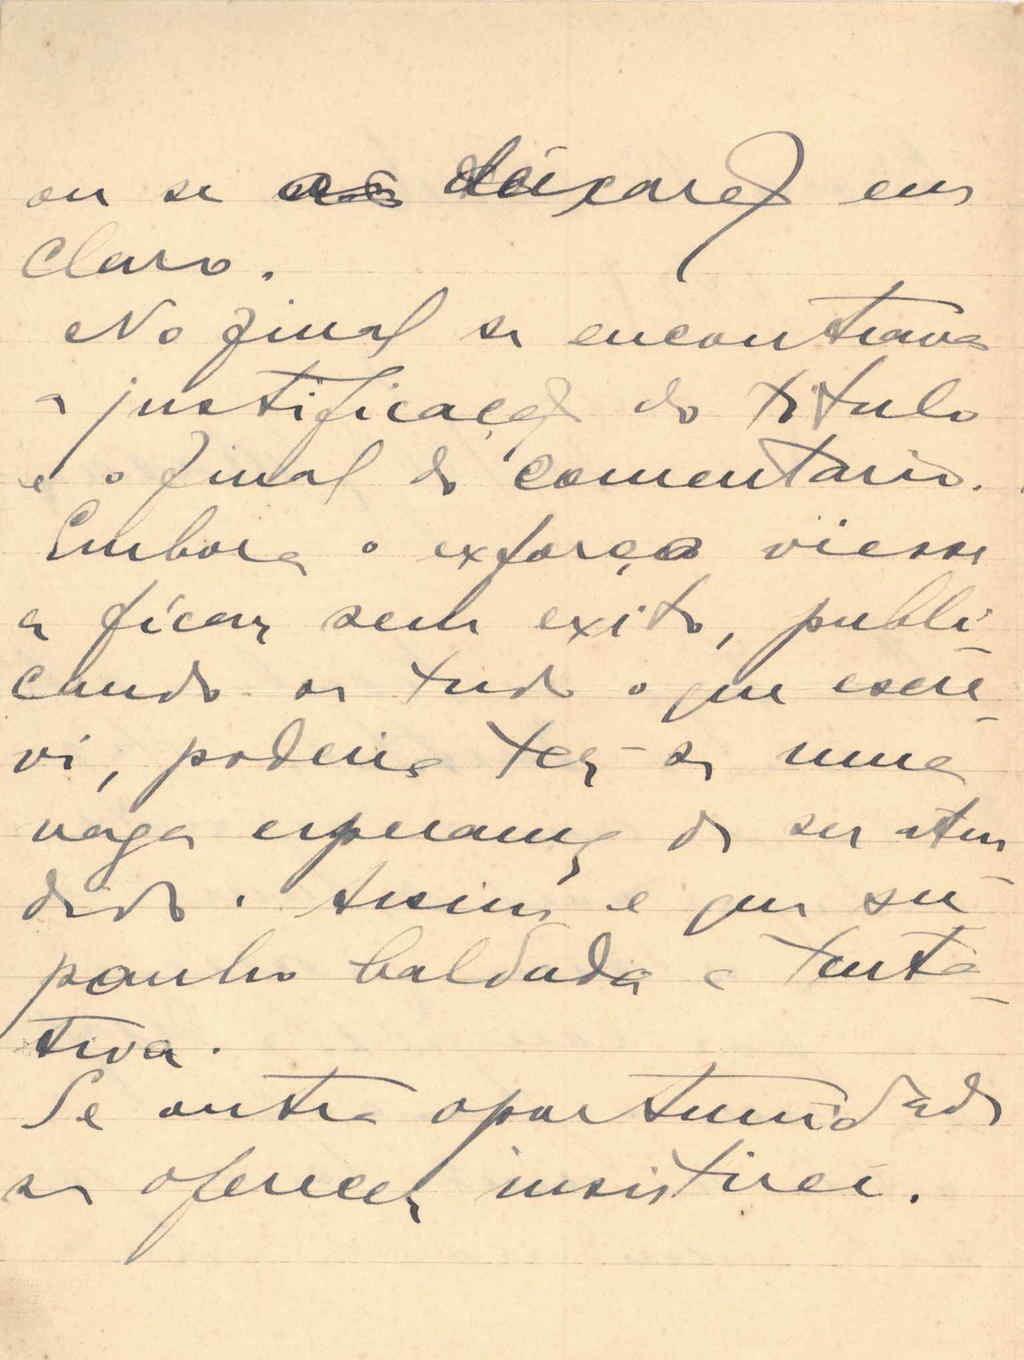 ou se deixarão em
claro.
No final se encontrava
a justificação do titulo
e o final do comentario.
Embora o exforço viesse
a ficar sem exito, publi
cando se tudo o que escre-
vi, poderia ter-se uma
vaga esperança de ser aten
dido. Assim é que su-
ponho baldada a tenta-
tiva.
Se outra oportunidade
se oferecer insistirei.